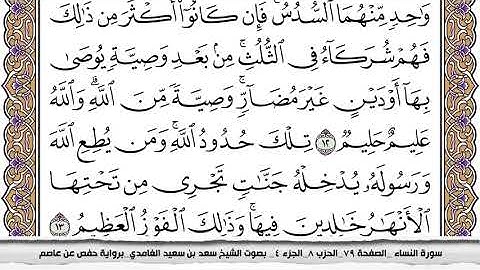 وَٰحِدٍ مِّنْهُمَا ٱلسُّدُسُ ۚ فَإِن كَانُوٓا۟ أَكْثَرَ مِن ذَٰلِكَ
فَهُمْ شُرَكَآءُ فِى ٱلثُّلُثِ ۚ مِنۢ بَعْدِ وَصِيَّةٍ يُوصَىٰ
بِهَآ أَوْ دَيْنٍ غَيْرَ مُضَآرٍّ ۚ وَصِيَّةً مِّنَ ٱللَّهِ ۗ وَٱللَّهُ
عَلِيمٌ حَلِيمٌ ١٢ تِلْكَ حُدُودُ ٱللَّهِ ۚ وَمَن يُطِعِ ٱللَّهَ
وَرَسُولَهُۥ يُدْخِلْهُ جَنَّٰتٍ تَجْرِى مِن تَحْتِهَا
ٱلْأَنْهَٰرُ خَٰلِدِينَ فِيهَا ۚ وَذَٰلِكَ ٱلْفَوْزُ ٱلْعَظِيمُ ١٣
سورة النساء _ الصفحة ٧٩ _ الحزب ٨ _ الجزء ٤ _ بصوت الشيخ سعد بن سعيد الغامدي _ برواية حفص عن عاصم